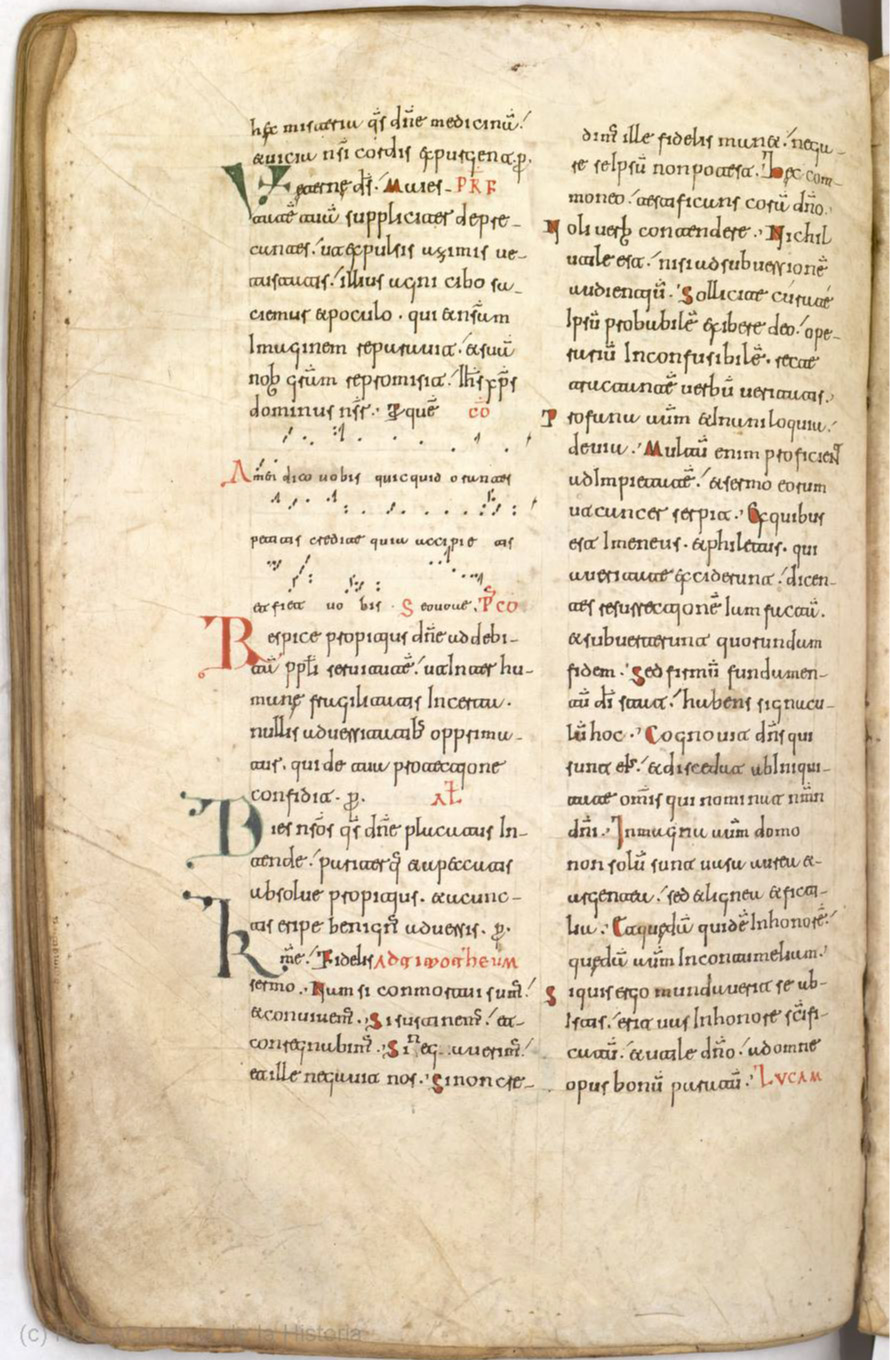 hęc misteria q̄s dn̄e medicina.
& uicia nr̄i cordis expurgent. p̄.
eterne ds̄. Maies- PRF
tatē tuā suppliciter depre-
cantes. ut expulsis azimis ue-
tustatis. illius agni cibo sa-
ciemur & poculo. qui & nsām
Imaginem reparauit. & suā
nob̄ grām repromisit. Ih̄s xp̄s
dominus nsr̄. Per quē cō
Amen dico uobis quicquid orantes
petitis credite quia accipie tis
et fiet uo bis Seououe. Ps CO
Respice propitius dn̄e ad debi-
tā pp̄li seruitutē. ut Inter hu-
manę fragilitatis Incerta.
nullis aduersitatib̄ opprima-
tur. qui de tua protectione
confidit. p̄. AL̄
Dies nsōs q̄s dn̄e placatus In-
tende. pariterq̄ & a peccatis
absolue propitius. & a cunc-
tis eripe benign̄ aduersis. p̄.
Kmē. Fidelis AD TIMOTHEUM
sermo. Nam si conmortui sum̄.
& conuiuem̄. Si sustinem̄. et
conregnabim̄. Si neg auerim̄.
et ille negauit nos. Si non cre-
dim̄ ille fidelis manet. nega-
re seIpsū non potest. Hęc com-
moneo. testificans corā dn̄o.
Noli uerb̄ contendere. Nichil
utile est. nisi ad subuersionē
audientiū. Sollicite cura te
Ipsū probabilē exibere deo. ope-
rariū Inconfusibilē. recte
tractantē uerbū ueritatis.
Profana aūm & Inaniloquia
deuita. Multū enim proficient
ad Impietatē. & sermo eorum
ut cancer serpit. Ex quibus
est Imeneus. & philetus. qui
a ueritate exciderunt. dicen-
tes resurrectionē Iam factā.
& subuerterunt quorundam
fidem. Sed firmū fundamen-
tū dī stat. habens signacu-
lū hoc. Cognouit dn̄s qui
sunt ei. & discedat ab Iniqui-
tate omīs qui nominat nmn̄
dnī. In magna aūm domo
non solū sunt uasa aurea &
argentea. sed & lignea & ficti-
lia. Et quędā quidē In honorē.
quędā aūm In contumeliam.
Siquis ergo mundauerit se ab
Istis. erit uas In honore scīfi-
catū. & utile dn̄o. ad omne
opus bonū paratū. LUCAM